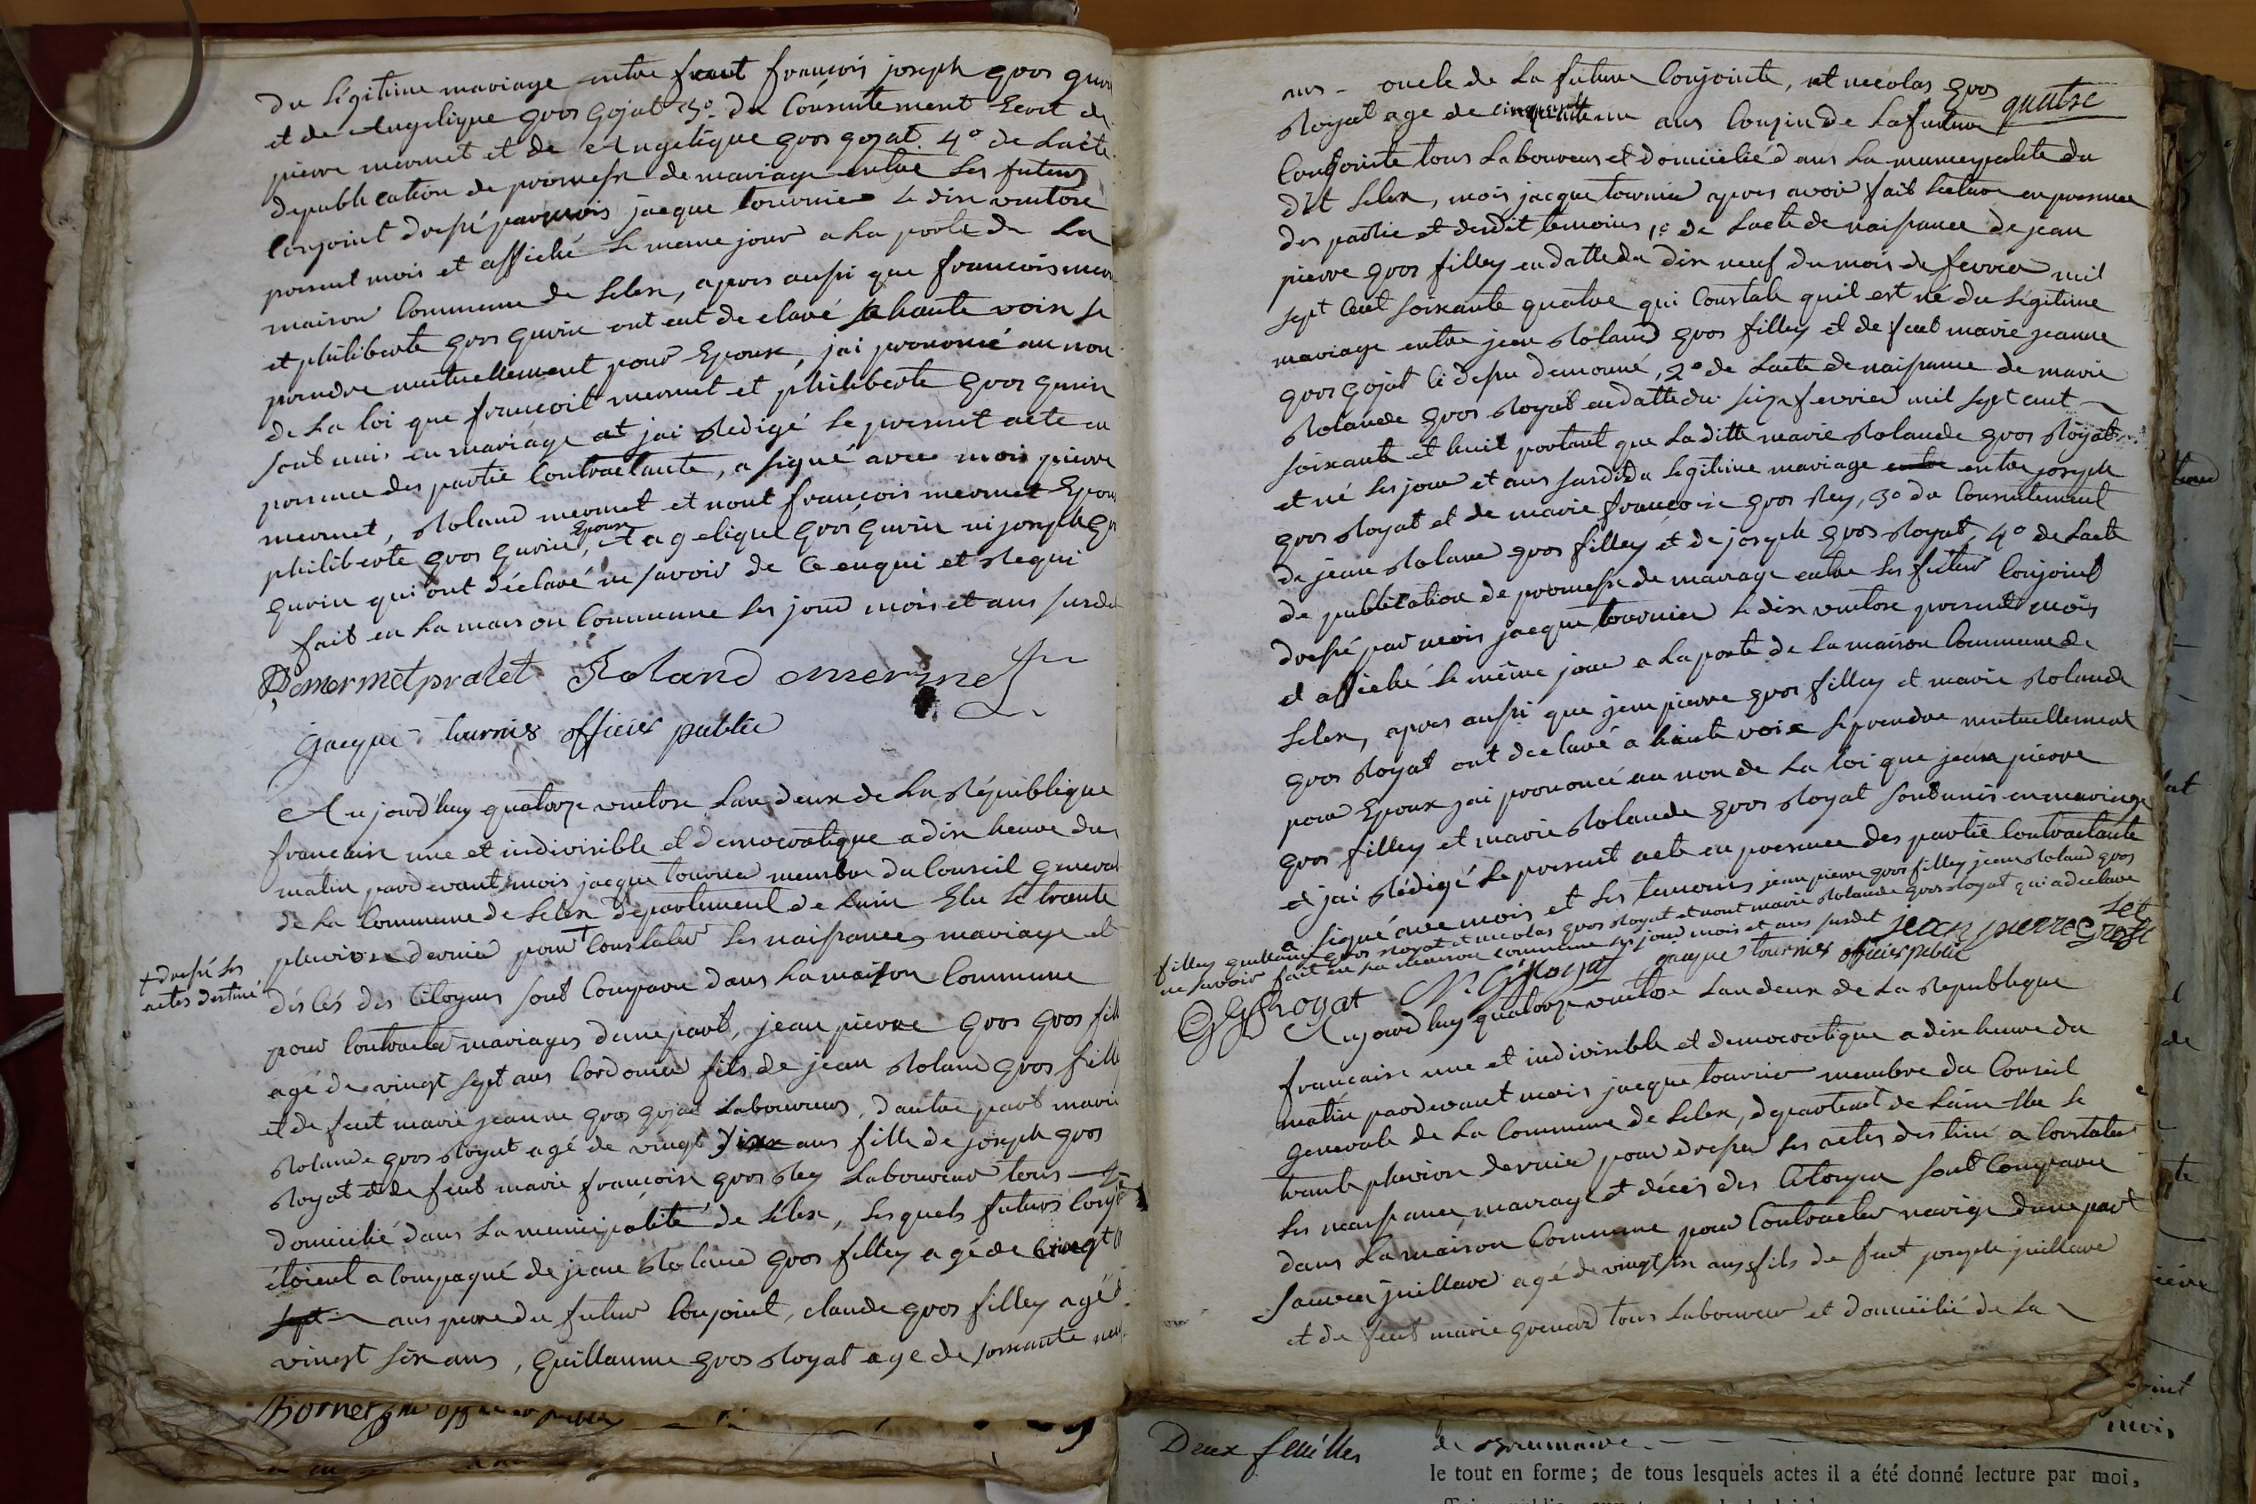 du Légitime mariage entre feut françois joseph gros gurin
et de Angelique gros gojat 3.º du Consentement Ecrit de
pierre mermet et de Angélique gros gojat. 4º de Lacte
depublication de promesse de mariage entre les futurs
Conjoint dressé parmois jacque tournier Le dix ventose
present mois et affiché Le meme jour a La porte de La
maison Commune de Lelex, apres aussi que francois mer
et philiberte gros gurin ont eut de claré a haute voix se
prendre mutuellement pour Epoux, jai prononcé au non
de La Loi que françoit mermet et philiberte gros gurin
sont unis en mariage et jai Redigé Le present acte en
presence des partie Contractante, a signé avec mois pierre
mermet, Roland mermet et nont françois mermet Epoux
philiberte gros gurin Epouse, et agelique gros gurin ni joseph g
gurin qui ont déclaré ne savoir de Ce enqui et Requi
fait en La maison Commune Les jour mois et ans susdit
P mermet pralet Roland mermet
jacque tournier officier public
Aujourd'huy quatorze ventose Lan deux de La République
francaise une et indivisible et democratique a dix heure du
matin pard evant mois jacque tournier membre du Conseil general
de La Commune de Lelex département de Lain Elu Le trante
pluviose dernier pour + Constater Les naissances mariage et
+ dressé les
actes destiné
déscés des Citoyens sont Comparu dans La maison Commune
pour Contracter mariages dune part, jean pierre gros gros fill
agé de vingt sept ans Cordonier fils de jean Roland gros fille
et de feut marie jeanne gros gojat Laboureurs, dautre part marie
Rolande gros Royat agé de vingt six ans fille de joseph gros
Royat et de feut marie françoise gros Rey Laboureur tous
domicilié dans La municipalité de Lelex, Lesquels futurs Conjoi
étoient a Compagné de jean Roland gros filley agé de Cinqt
sept ans pere du futur Conjoint, claude gros filley agé d
vingt six ans, guillaume gros Royat age de soixante neuf
officier public
ans - oncle de La future Conjointe, et nicolas gros
quatre
Royat age de cinquante un ans Cousin de La future
Conjointe tous Laboureurs et domicilié dans La municipalite du
dit Lelex, mois jacque tournier apres avoir fait Lecture en presence
des partie et desdit temoins 1º de Lacte de naissance de jean
pierre gros filley en datte du dix neuf du mois de fevrier mil
sept Cent soixante quatre qui Constate quil est né du Légitime
mariage entre jean Roland gros filley et de feut marie jeanne
gros gojat Ci dessu denommé, 2º de Lacte de naissance de marie
Rolande gros Royat en datte du seize fevrier mil sept cent
soixante et huit portant que La ditte marie Rolande gros Royat
et né Les jour et ans susdit du Legitime mariage entre entre joseph
gros Royat et de marie françoise gros Rey, 3º du Consentement
de jean Roland gros filley et de joseph gros Royat, 4º de Lacte
de publication de promesse de mariage entre Les futur Conjoint
dressé par mois jacque tournier Le dix ventose present mois
et affiché Le même jour a La porte de La maison Commune de
Lelex, apres aussi que jean pierre gros filley et marie Rolande
gros Royat ont declaré a haute voix Se prendre mutuellement
pour Epoux jai prononcé au non de La Loi que jean pierre
gros filley et marie Rolande gros Royat sont unis en mariage
et jai Rédigé Le present acte en presence des partie Contractante
a signé avec mois et Les temoins jean pierre gros filley jean Roland gros
filley guillaume gros Royat et nicolas gros Royat et nont marie Rolande gros Royat qui a declare
ne savoir fait en La maison Commune Les jour mois et ans susdit jean pierre gros
GG Royat N. G Royat jacque tournier officier public
Aujourd'huy quatorze ventose Lan deux de La Republique
francaise une et indivisible et democratique a dix heure du
matin pardevant mois jacque tournier membre du Conseil
Generale de La Commune de Lelex, département de Lain Elu Le
trante pluviose dernier pour dresser Les actes destiné a Constater
Les naissance, mariage et décès des Citoyen sont Comparu
dans La maison Commune pour Contracter mariage dune part
juillard agé de vingt six ans fils de feut joseph juillard
et de feut marie grenard tous Laboureur et domicilié de La
Deux feuilles
moix
le tout en forme ; de tous lesquels actes il a été donné lecture par moi,